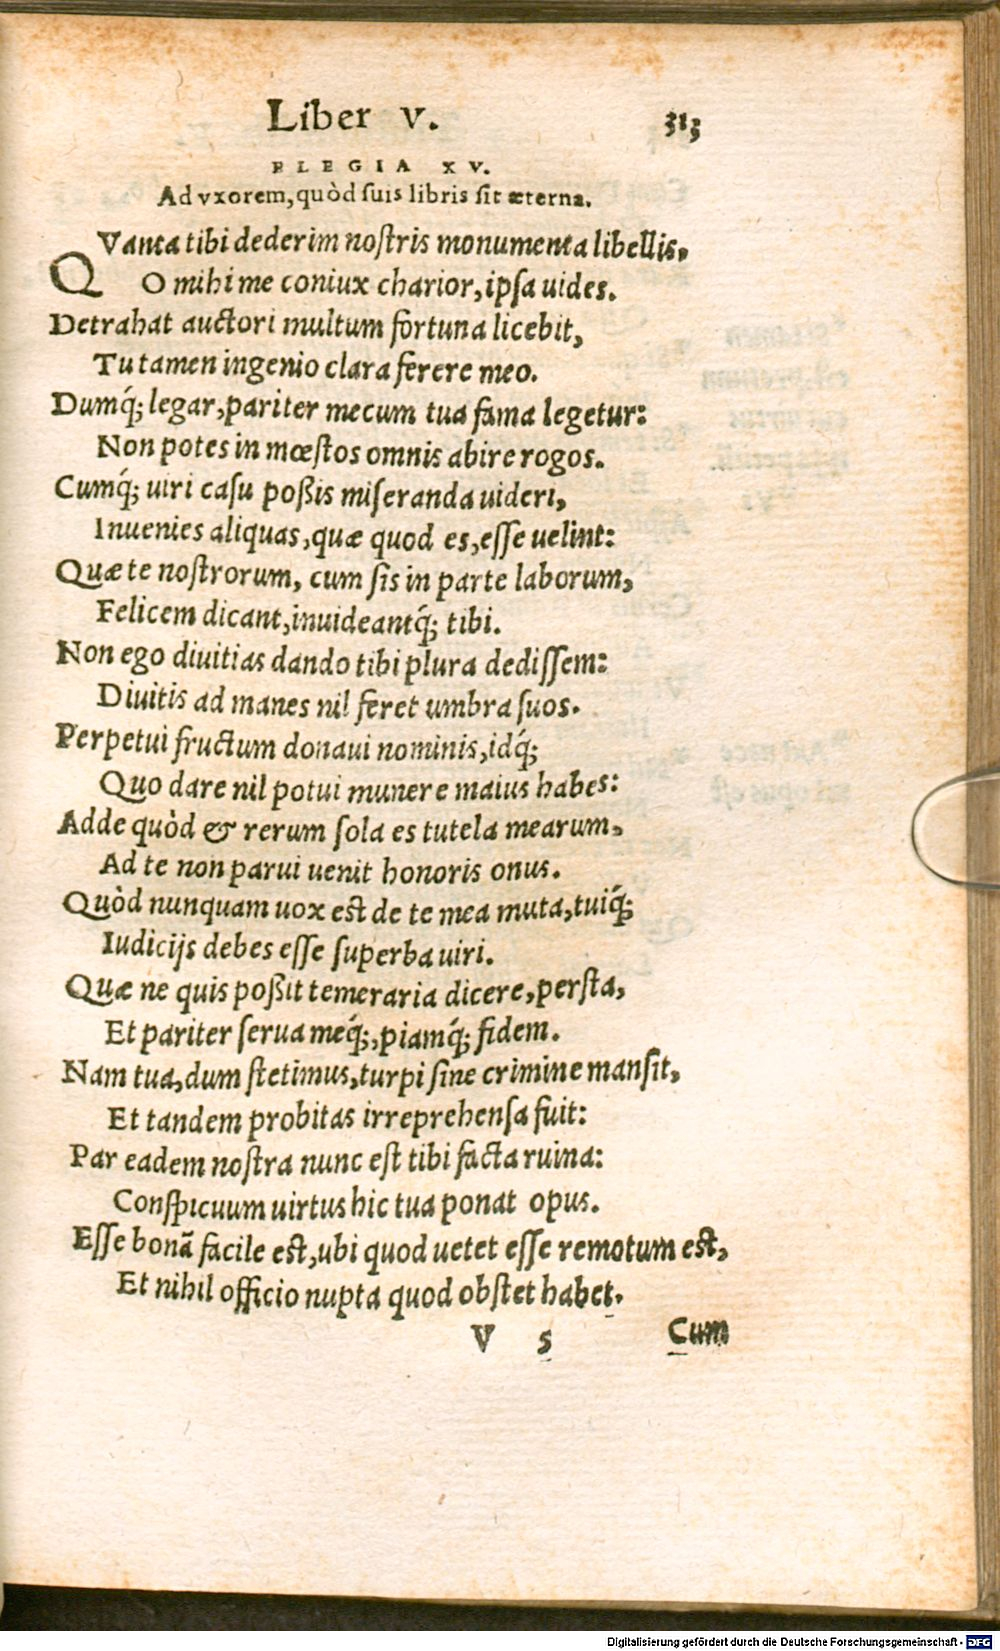 Liber V.
313
ELEGIA XV.
Ad vxorem, quòd suis libris sit æterna.
QVanta tibi dederim nostris monumenta libellis,
O mihi me coniux charior, ipsa uides.
Detrahat auctori multum fortuna licebit,
Tu tamen ingenio clara ferere meo.
Dumq́; legar, pariter mecum tua fama legetur:
Non potes in mœstos omnis abire rogos.
Cumq́; uiri casu poßis miseranda uideri,
Inuenies aliquas, quæ quod es, esse uelint:
Quæ te nostrorum, cum sis in parte laborum,
Felicem dicant, inuideantq́; tibi.
Non ego diuitias dando tibi plura dedissem:
Diuitis ad manes nil feret umbra suos.
Perpetui fructum donaui nominis, idq́;
Quo dare nil potui munere maius habes:
Adde quòd & rerum sola es tutela mearum,
Ad te non parui uenit honoris onus.
Quòd nunquam uox est de te mea muta, tuiq́;
Iudicijs debes esse superba uiri.
Quæ ne quis poßit temeraria dicere, persta,
Et pariter serua meq́;, piamq́; fidem.
Nam tua, dum stetimus, turpi sine crimine mansit,
Et tandem probitas irreprehensa fuit:
Par eadem nostra nunc est tibi facta ruina:
Conspicuum uirtus hic tua ponat opus.
Esse bonã facile est, ubi quod uetet esse remotum est,
Et nihil officio nupta quod obstet habet.
V 5
Cum
Digitalisierung gefördert durch die Deutsche Forschungsgemeinschaft - DFG